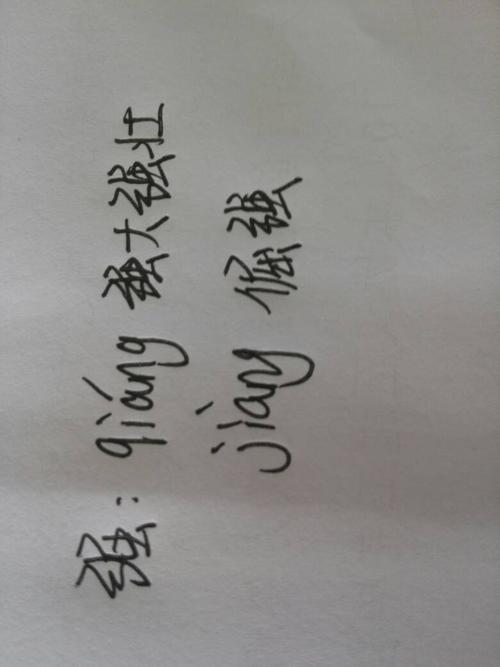 强：qiáng 强大强壮
jiàng 倔强